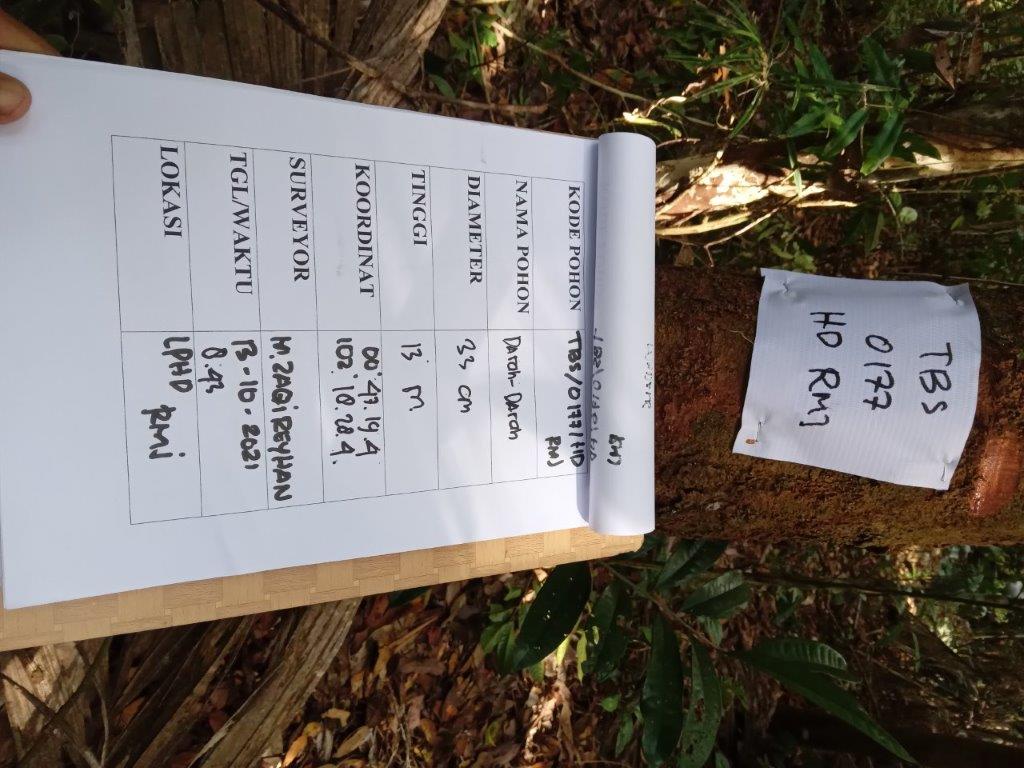 KODE POHON TBS/0177/HD
RMJ
NAMA POHON Darah-Darah
DIAMETER 33 cm
TINGGI 13 m
KOORDINAT 00°.47.19 4
102°.18.28 4.
SURVEYOR M.ZAQI REYHAN
TGL/WAKTU 13-10-2021
8.43
LOKASI LPHD RMJ
TBS
0177
HD RMJ